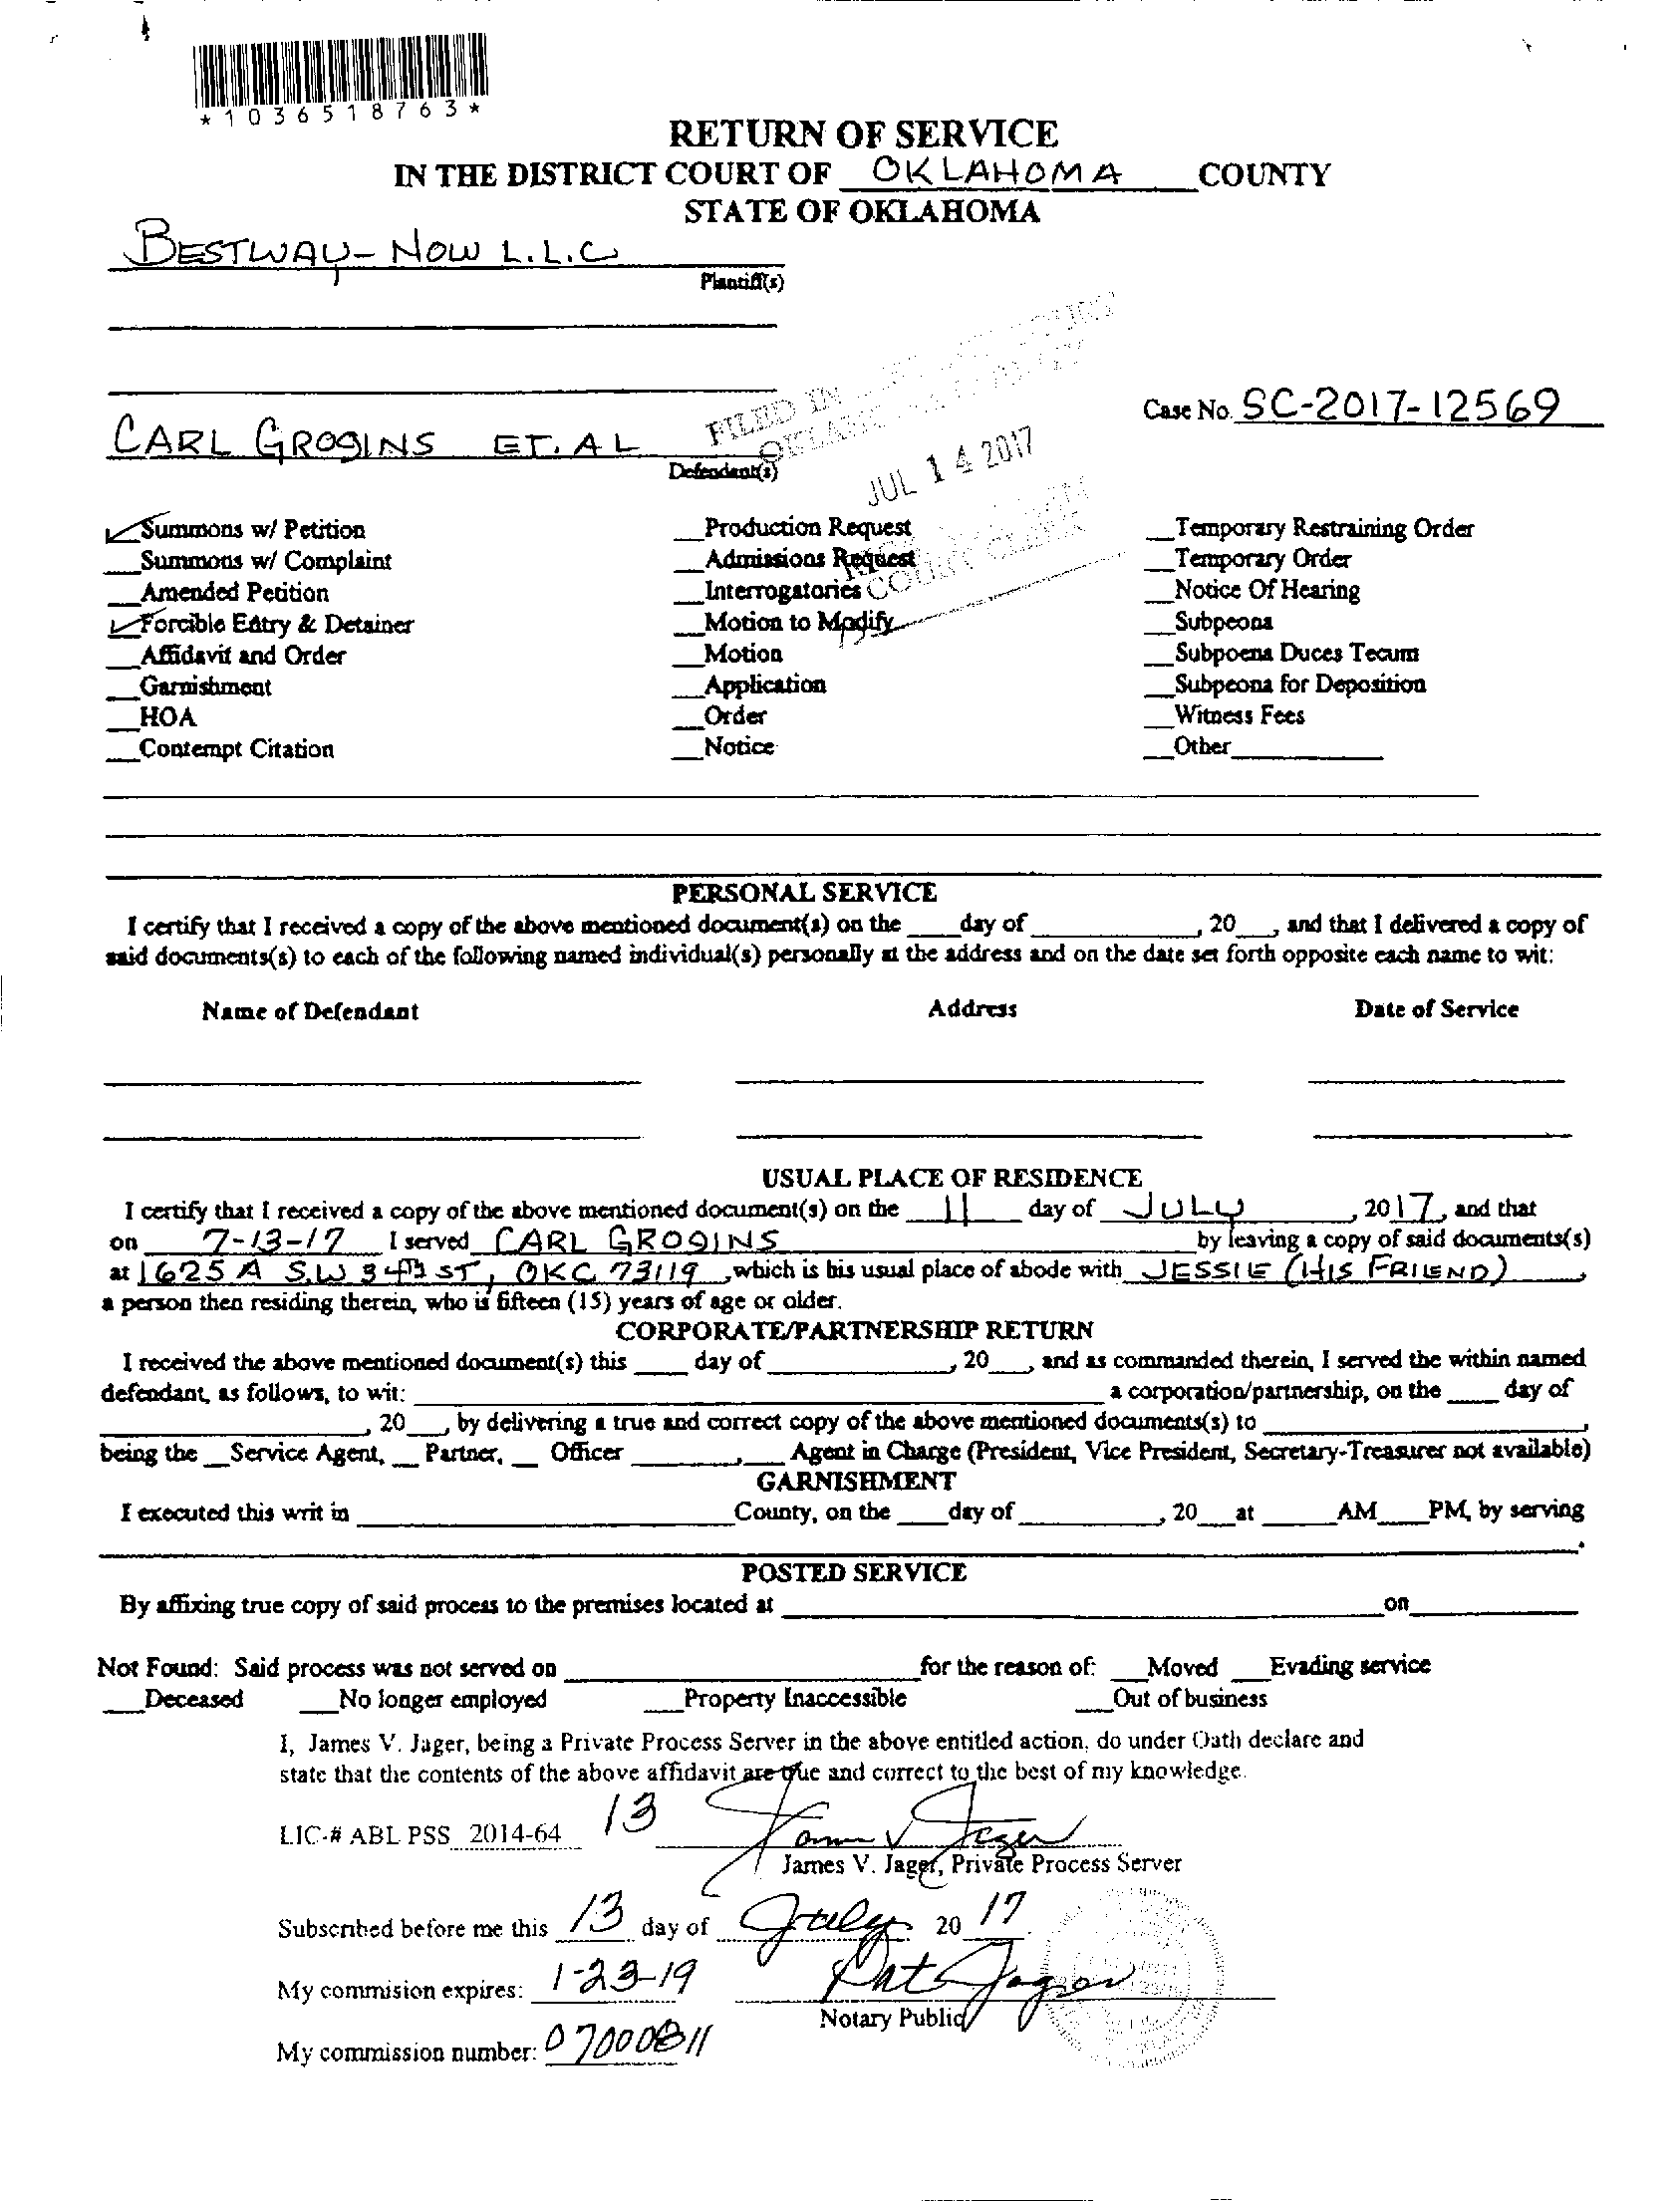 *1036518763*
RETURN OF SERVICE
IN THE DISTRICT COURT OF OKLAHOMA COUNTY
STATE OF OKLAHOMA
BESTWAY-NOW L.L.C
Plantiff(s)
FILED IN
JUL 14 2017
COURT CLERK
Case No. SC-2017-12569
CARL GROGINS ET. AL
Defendant(s)
Summons w/ Petition Production Request Temporary Restraining Order
Summons w/ Complaint Admissions Request Temporary Order
Amended Petition Interrogatories Notice Of Hearing
Forcible Entry & Detainer Motion to Modify Subpeona
Affidavit and Order Motion Subpoena Duces Tecum
Garnishment Application Subpeona for Deposition
HOA Order Witness Fees
Contempt Citation Notice Other
PERSONAL SERVICE
I certify that I received a copy of the above mentioned document(s) on the ____ day of ____, 20___, and that I delivered a copy of
said documents(s) to each of the following named individual(s) personally at the address and on the date set forth opposite each name to wit:
Name of Defendant Address Date of Service
USUAL PLACE OF RESIDENCE
I certify that I received a copy of the above mentioned document(s) on the 11 day of JULY, 2017, and that
on 7-13-17 I served CARL GROGINS by leaving a copy of said documents(s)
at 1625 A S.W 34TH ST, OKC 73119, which is his usual place of abode with JESSIE (HIS FRIEND),
a person then residing therein, who is fifteen (15) years of age or older.
CORPORATE/PARTNERSHIP RETURN
I received the above mentioned document(s) this ____ day of ____, 20___, and as commanded therein, I served the within named
defendant, as follows, to wit: ____ a corporation/partnership, on the ____ day of
____, 20___, by delivering a true and correct copy of the above mentioned documents(s) to ____,
being the __Service Agent, __ Partner, __ Officer ____,____ Agent in Charge (President, Vice President, Secretary-Treasurer not available)
GARNISHMENT
I executed this writ in ____ County, on the ____ day of ____, 20___ at ____ AM ____ PM, by serving
____.
POSTED SERVICE
By affixing true copy of said process to the premises located at ____ on ____
Not Found: Said process was not served on ____ for the reason of: ___Moved ___Evading service
___Deceased ___No longer employed ___Property Inaccessible ___Out of business
I, James V. Jager, being a Private Process Server in the above entitled action, do under Oath declare and
state that the contents of the above affidavit are true and correct to the best of my knowledge.
LIC-# ABL PSS 2014-64 13 James V Jager
James V. Jager, Private Process Server
Subscribed before me this 13 day of July 20 17
My commision expires: 1-23-19 Pat Jager
Notary Public
My commission number: 07000811